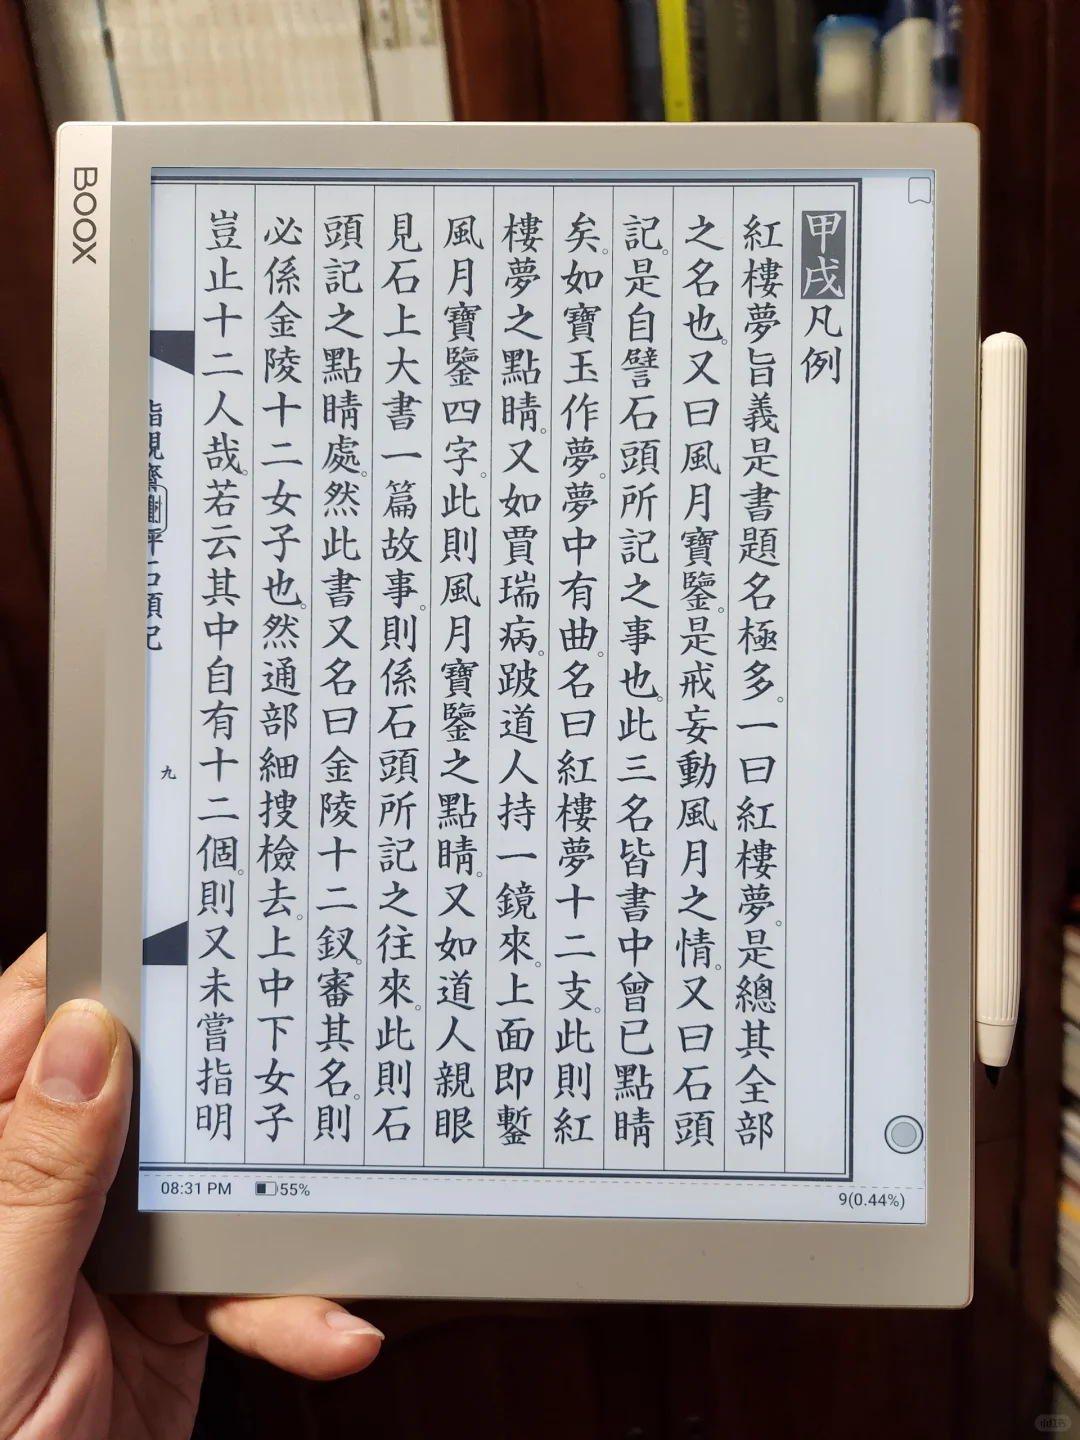 BOOX
甲戌凡例
紅樓夢旨義是書題名極多。一曰紅樓夢。是總其全部
之名也。又曰風月寶鑒。是戒妄動風月之情。又曰石頭
記。是自譬石頭所記之事也。此三名皆書中曾已點睛
矣。如寶玉作夢。夢中有曲。名曰紅樓夢十二支。此則紅
樓夢之點睛。又如賈瑞病。跛道人持一鏡來。上面即鏨
風月寶鑒四字。此則風月寶鑒之點睛。又如道人親眼
見石上大書一篇故事。則係石頭所記之往來。此則石
頭記之點睛處。然此書又名曰金陵十二釵。審其名。則
必係金陵十二女子也。然通部細搜檢去。上中下女子
豈止十二人哉。若云其中自有十二個。則又未嘗指明
九
08:31 PM 55%
9(0.44%)
小红书